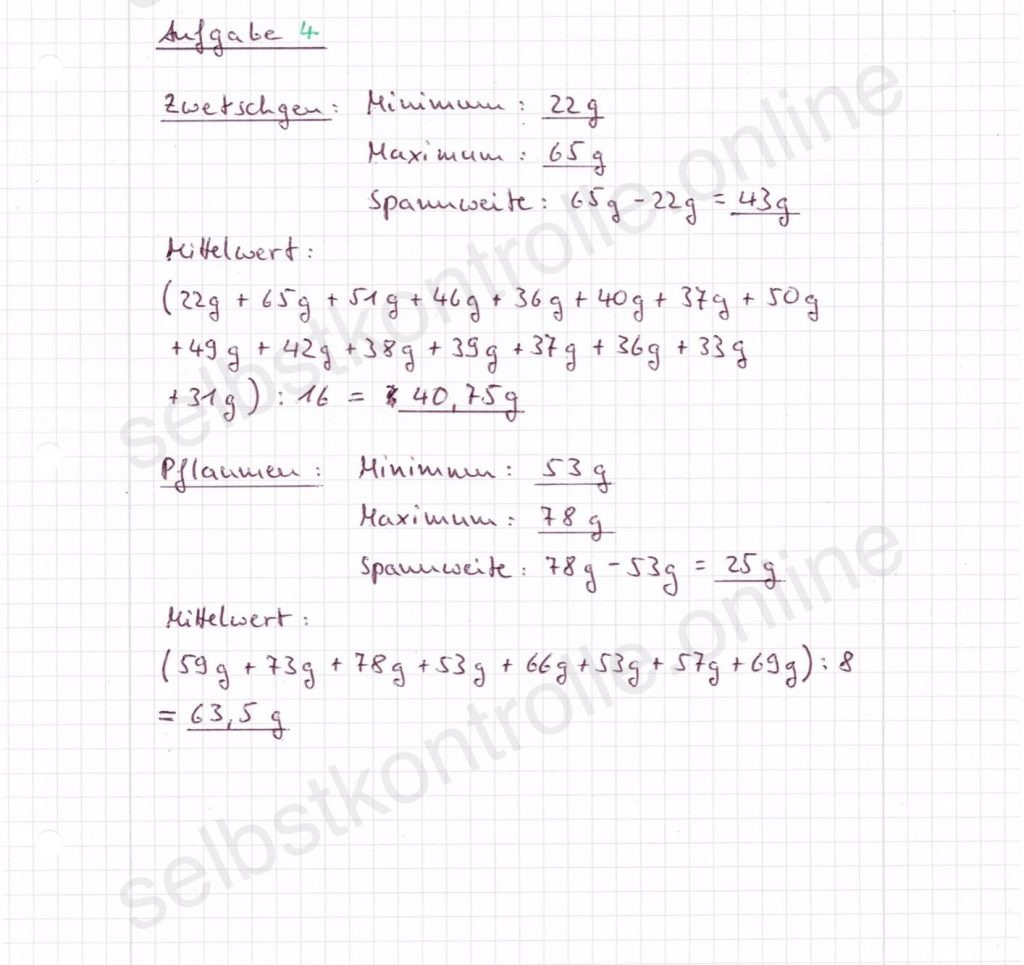 Aufgabe 4
Zwetschgen: Minimum: 22g
Maximum: 65g
Spannweite: 65g - 22g = 43g
Mittelwert:
(22g + 65g + 51g + 46g + 36g + 40g + 37g + 50g
+ 49g + 42g + 38g + 39g + 37g + 36g + 33g
+ 31g) : 16 = 40,75g
Pflaumen: Minimum: 53g
Maximum: 78g
Spannweite: 78g - 53g = 25g
Mittelwert:
(59g + 73g + 78g + 53g + 66g + 53g + 57g + 69g) : 8
= 63,5 g
selbstkontrolle.online
selbstkontrolle.online